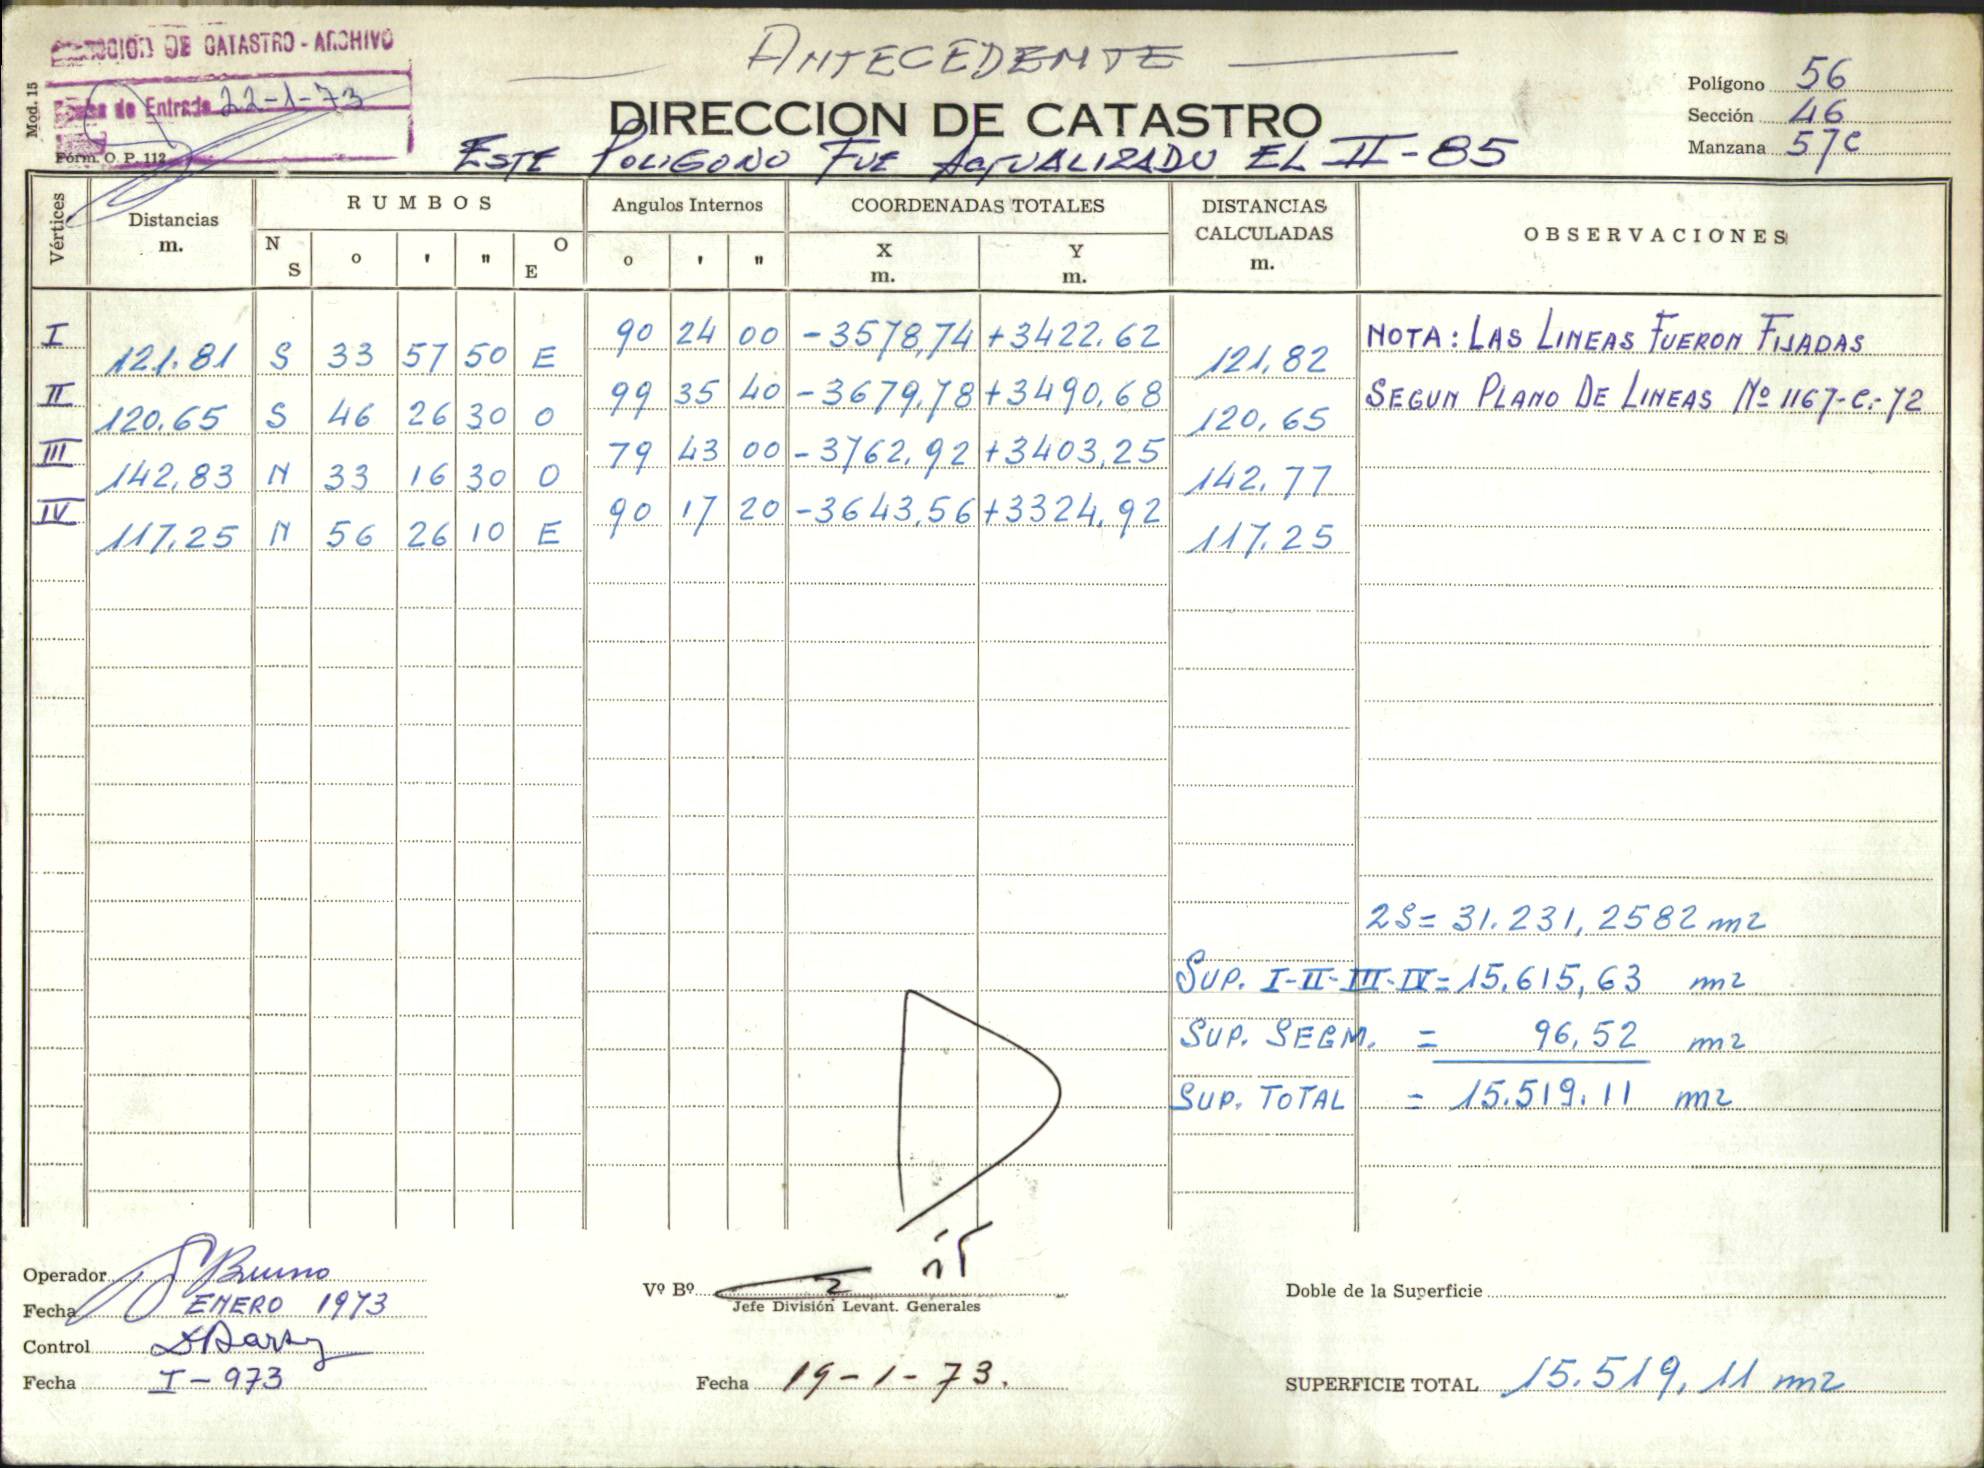 DIRECCION DE CATASTRO - ARCHIVO
Mod. 15
de Entrada 22-1-73
Form. O. P. 112
ANTECEDENTE
DIRECCION DE CATASTRO
ESTE POLIGONO FUE ACTUALIZADO EL II-85
Polígono 56
Sección 46
Manzana 57C
Vértices Distancias m. RUMBOS N S o ' " O E Angulos Internos o ' " COORDENADAS TOTALES X m. Y m. DISTANCIAS CALCULADAS m. OBSERVACIONES
I 90 24 00 -3578,74 +3422.62 NOTA: LAS LINEAS FUERON FIJADAS
121.81 S 33 57 50 E 121,82
II 99 35 40 -3679,78 +3490,68 SEGUN PLANO DE LINEAS Nº 1167-C-72
120.65 S 46 26 30 O 120,65
III 79 43 00 -3762,92 +3403,25
142,83 N 33 16 30 O 142,77
IV 90 17 20 -3643,56 +3324,92
117,25 N 56 26 10 E 117.25
2S= 31.231,2582 m2
SUP. I-II-III-IV= 15.615,63 m2
SUP. SEGM. = 96,52 m2
SUP. TOTAL = 15.519.11 m2
Operador Bruno
Fecha ENERO 1973
Control
Fecha I-973
Vº Bº
Jefe División Levant. Generales
Fecha 19-1-73.
Doble de la Superficie
SUPERFICIE TOTAL 15.519,11 m2